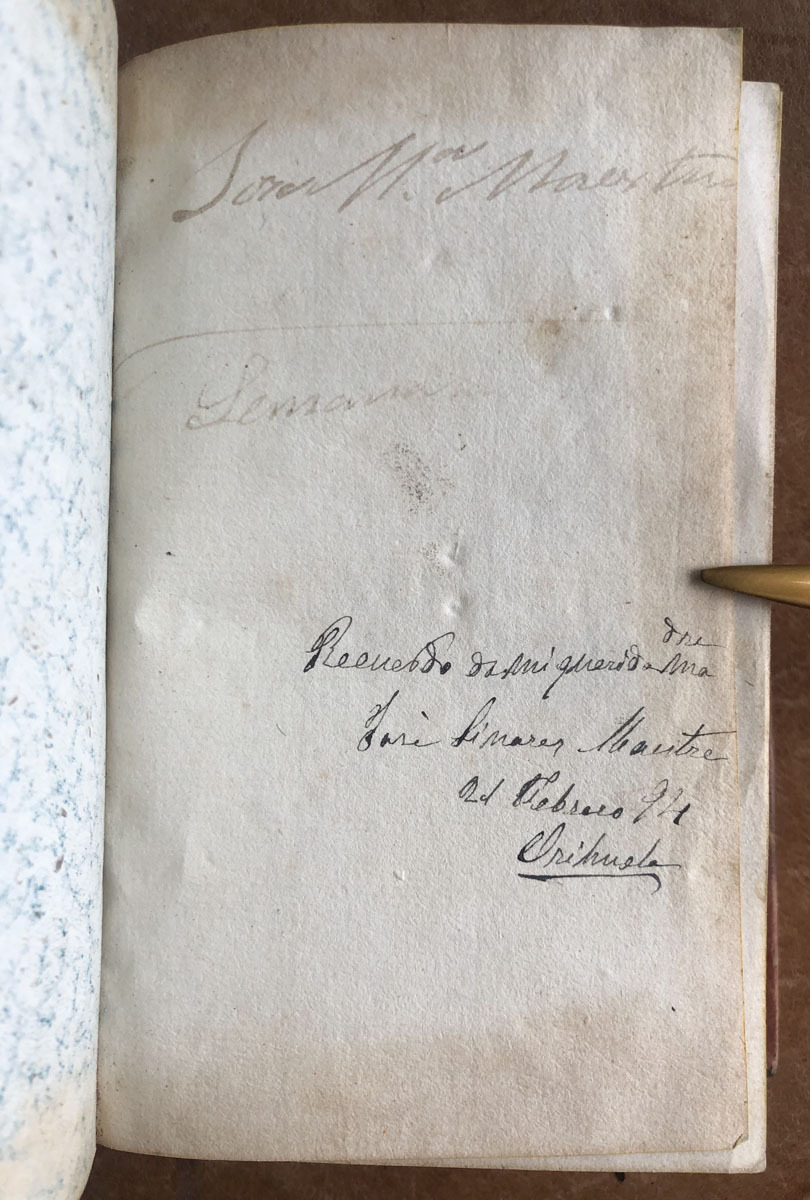 José M.ª Maestre
Recuerdo de mi querida Madre
José Linares Maestre
21 Febrero 94
Orihuela